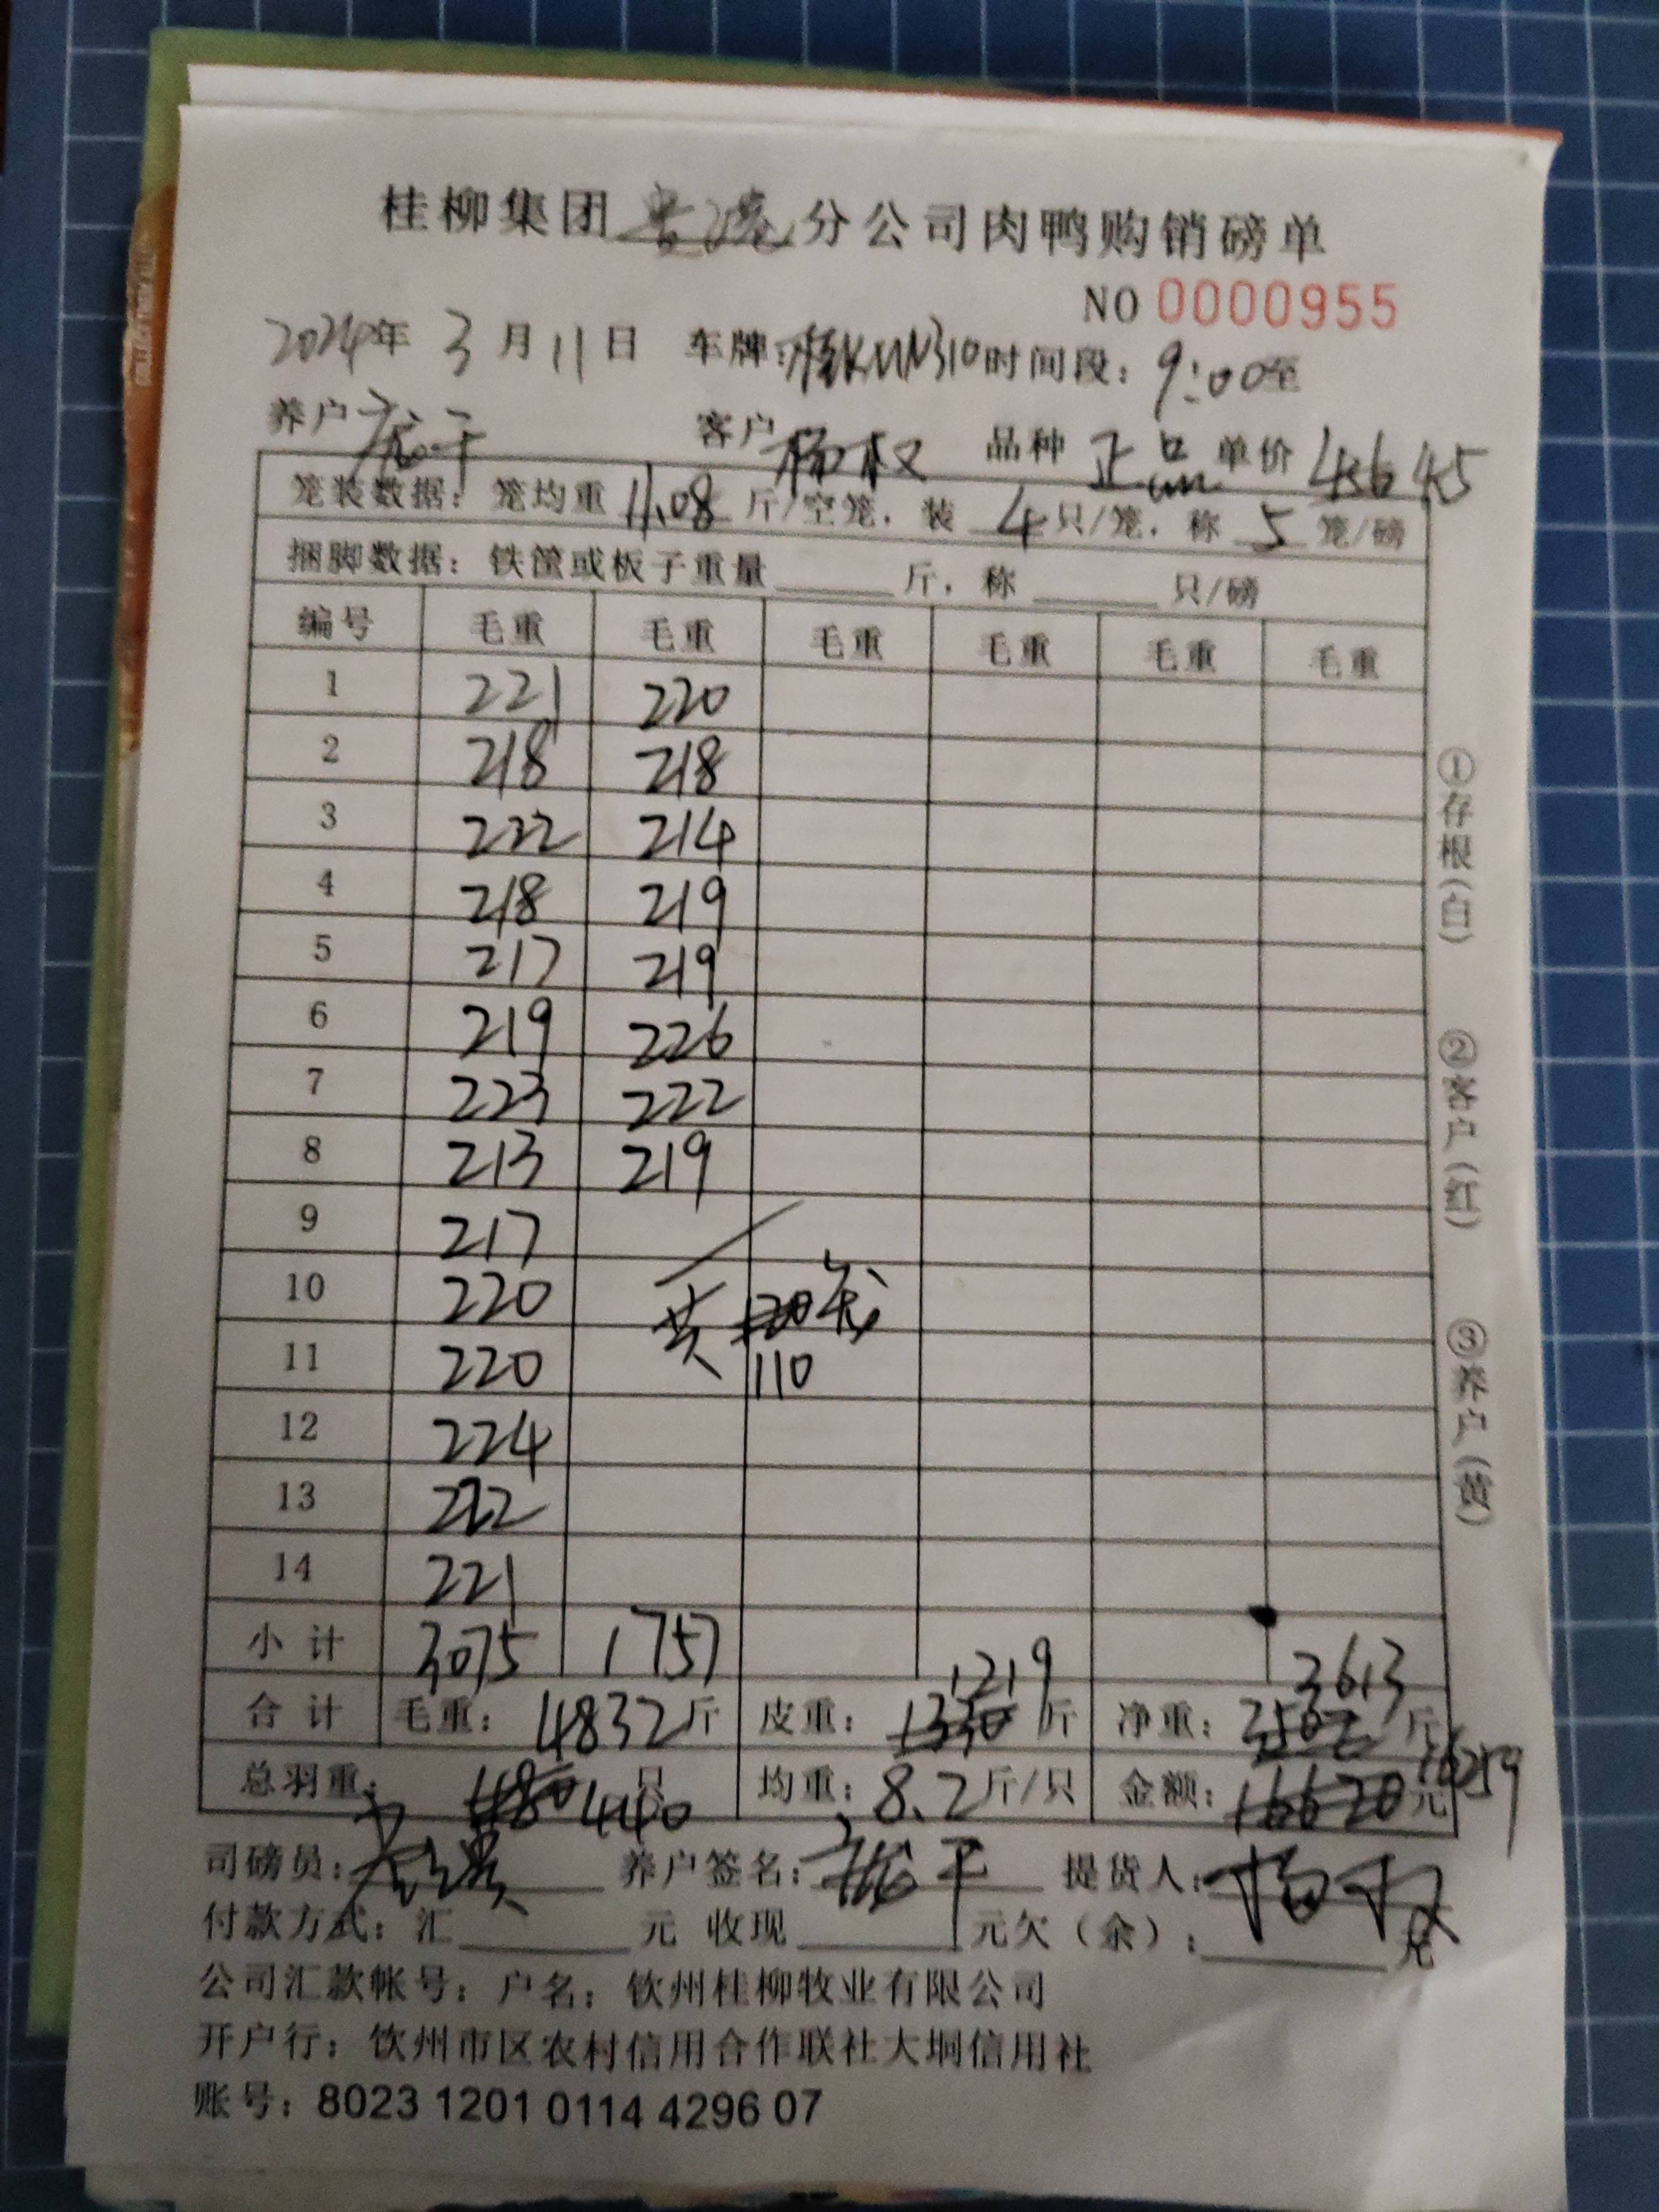 桂柳集团贵港分公司肉鸭购销磅单
NO 0000955
2024年 3 月 11 日 车牌:桂KUN310 时间段: 9:00至
养户 客户 杨权 品种 正品 单价 4.5
笼装数据: 笼均重 11.08 斤/空笼, 装 4 只/笼, 称 5 笼/磅
捆脚数据: 铁筐或板子重量 斤, 称 只/磅
编号 毛重 毛重 毛重 毛重 毛重 毛重
1 221 220
2 218 218
3 222 214
4 218 219
5 217 219
6 219 226
7 223 222
8 213 219
9 217
10 220 共 120笼
11 220 110
12 224
13 222
14 221
小计 3075 1757
1219 3613
合计 毛重: 4832斤 皮重: 1330 斤 净重: 3502 斤
总羽重: 480 440 只 均重: 8.2斤/只 金额: 16620元 16259
司磅员: 养户签名: 提货人: 杨权
付款方式: 汇 元 收现 元欠(余): 元
公司汇款帐号: 户名: 钦州桂柳牧业有限公司
开户行: 钦州市区农村信用合作联社大垌信用社
账号: 8023 1201 0114 4296 07
①存根(白) ②客户(红) ③养户(黄)